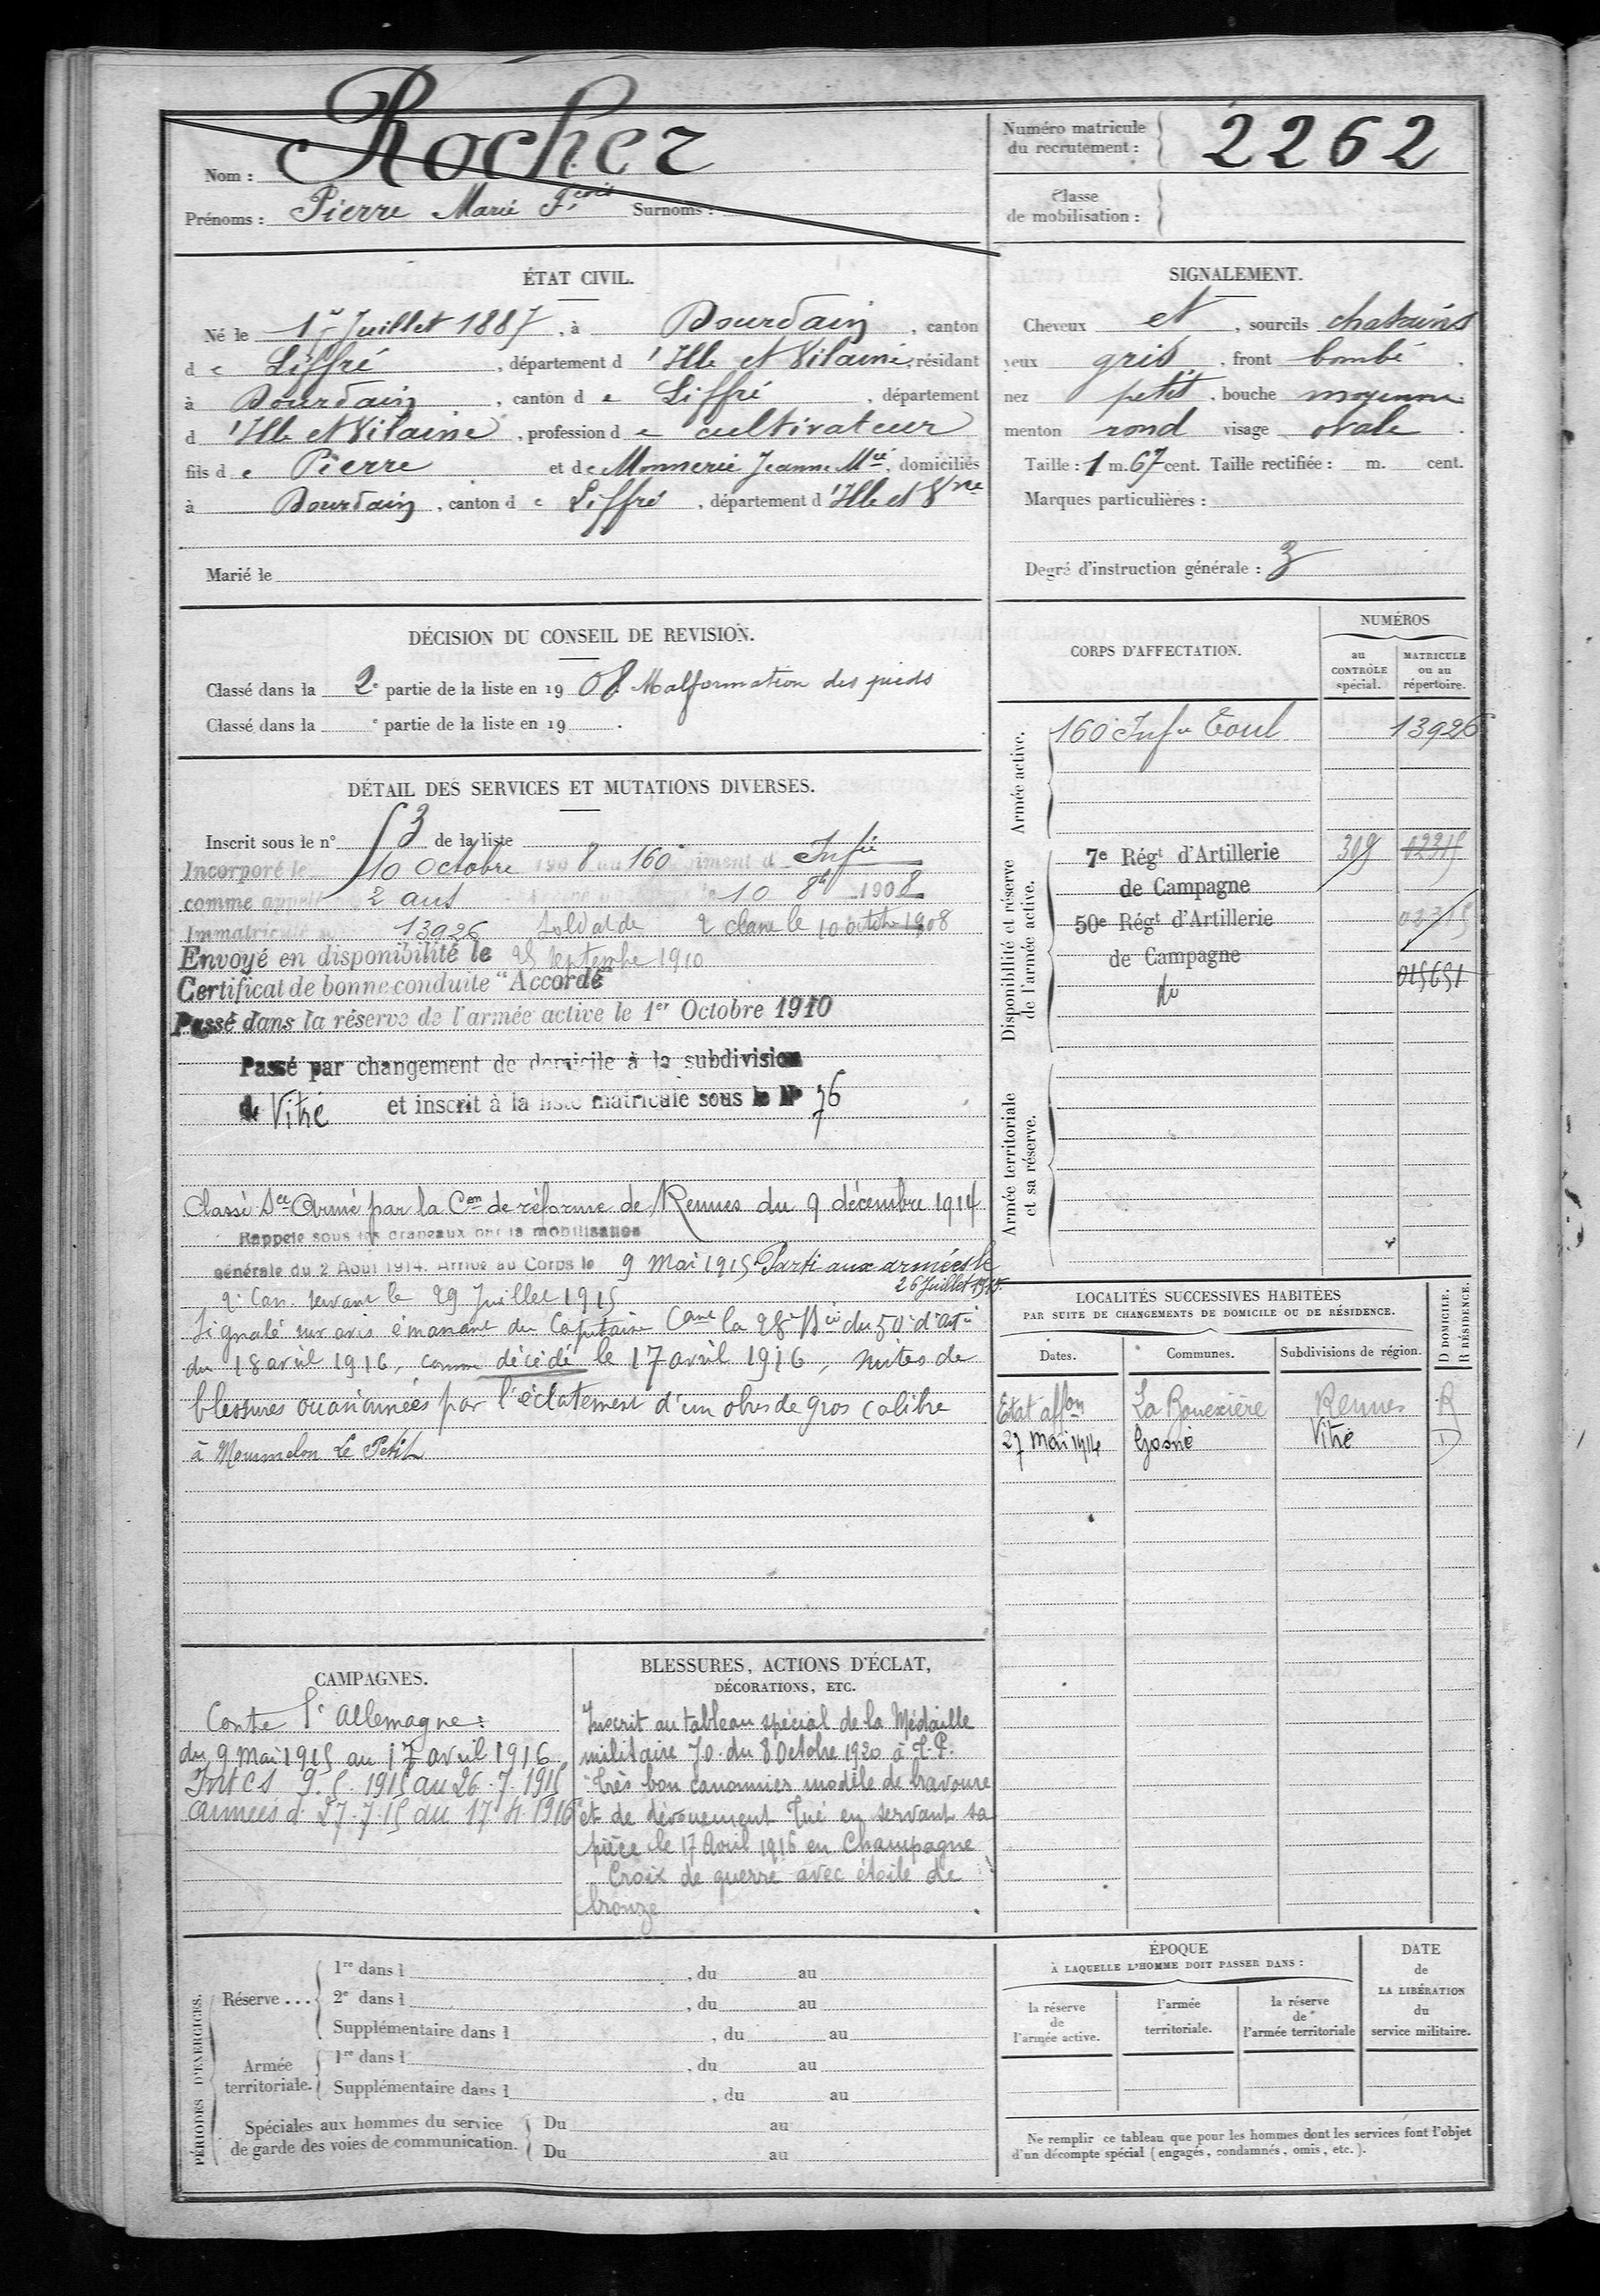 Nom : Rocher
Prénoms : Pierre Marie Fçois Surnoms :
Numéro matricule du recrutement : 2262
Classe de mobilisation :
ÉTAT CIVIL.
Né le 1r Juillet 1887, à Dourdain, canton
de Liffré, département d'Ille et Vilaine, résidant
à Dourdain, canton de Liffré, département
d'Ille et Vilaine, profession de cultivateur
fils de Pierre et de Monnerie Jeanne Mie, domiciliés
à Dourdain, canton de Liffré, département d'Ille et Vne
Marié le
SIGNALEMENT.
Cheveux et, sourcils chatains
yeux gris, front bombé.
nez petit, bouche moyenne.
menton rond visage ovale.
Taille : 1 m. 67 cent. Taille rectifiée : m. cent.
Marques particulières :
Degré d'instruction générale : 3
DÉCISION DU CONSEIL DE REVISION.
Classé dans la 2e partie de la liste en 1908. Malformation des pieds
Classé dans la e partie de la liste en 19 .
DÉTAIL DES SERVICES ET MUTATIONS DIVERSES.
Inscrit sous le n° 53 de la liste
Incorporé le 10 Octobre 1908 au 160e Régiment d'Infie
comme appelé 2 ans 10 8bre 1908
Immatriculé 13926 soldat de 2e classe le 10 octobre 1908
Envoyé en disponibilité le 25 septembre 1910
Certificat de bonne conduite "Accordé"
Passé dans la réserve de l'armée active le 1er Octobre 1910
Passé par changement de domicile à la subdivision
de Vitré et inscrit à la liste matricule sous le No 76
Classé Sce Armé par la Con de réforme de Rennes du 9 décembre 1914
Rappelé sous les drapeaux par la mobilisation
générale du 2 Août 1914. Arrivé au Corps le 9 Mai 1915 Parti aux armées le
26 Juillet 1915.
2e Can. servant le 29 Juillet 1915
Signalé sur avis émanant du Capitaine Cant la 28e Bie du 50e d'Atie
du 18 avril 1916, comme décédé le 17 avril 1916, suites de
blessures occasionnées par l'éclatement d'un obus de gros calibre
à Mourmelon Le Petit
CORPS D'AFFECTATION.
NUMÉROS
au CONTRÔLE spécial.
MATRICULE ou au répertoire.
Armée active.
160e Infie Toul 13926
Disponibilité et réserve de l'armée active.
7e Régt d'Artillerie 309 02315
de Campagne
50e Régt d'Artillerie 02315
de Campagne
do 015651
Armée territoriale et sa réserve.
LOCALITÉS SUCCESSIVES HABITÉES
PAR SUITE DE CHANGEMENTS DE DOMICILE OU DE RÉSIDENCE.
Dates. Communes. Subdivisions de région. D DOMICILE. R RÉSIDENCE.
Etat affon La Bouexière Rennes R
27 Mai 1914 Gosné Vitré D
CAMPAGNES.
Contre l'Allemagne :
du 9 Mai 1915 au 17 avril 1916
Int CS 9.5.1915 au 26.7.1915
Armées d. 27.7.15 au 17.4.1916
BLESSURES, ACTIONS D'ÉCLAT,
DÉCORATIONS, ETC.
Inscrit au tableau spécial de la Médaille
militaire J.O. du 8 Octobre 1920 à T.P.
Très bon canonnier modèle de bravoure
et de dévouement Tué en servant sa
pièce le 17 Avril 1916 en Champagne
Croix de guerre avec étoile de
bronze
PÉRIODES D'EXERCICES.
Réserve...
1re dans l , du au
2e dans l , du au
Supplémentaire dans l , du au
Armée territoriale.
1re dans l , du au
Supplémentaire dans l , du au
Spéciales aux hommes du service
de garde des voies de communication.
Du au
Du au
ÉPOQUE
À LAQUELLE L'HOMME DOIT PASSER DANS :
la réserve de l'armée active.
l'armée territoriale.
la réserve de l'armée territoriale
DATE de LA LIBÉRATION du service militaire.
Ne remplir ce tableau que pour les hommes dont les services font l'objet
d'un décompte spécial (engagés, condamnés, omis, etc.).